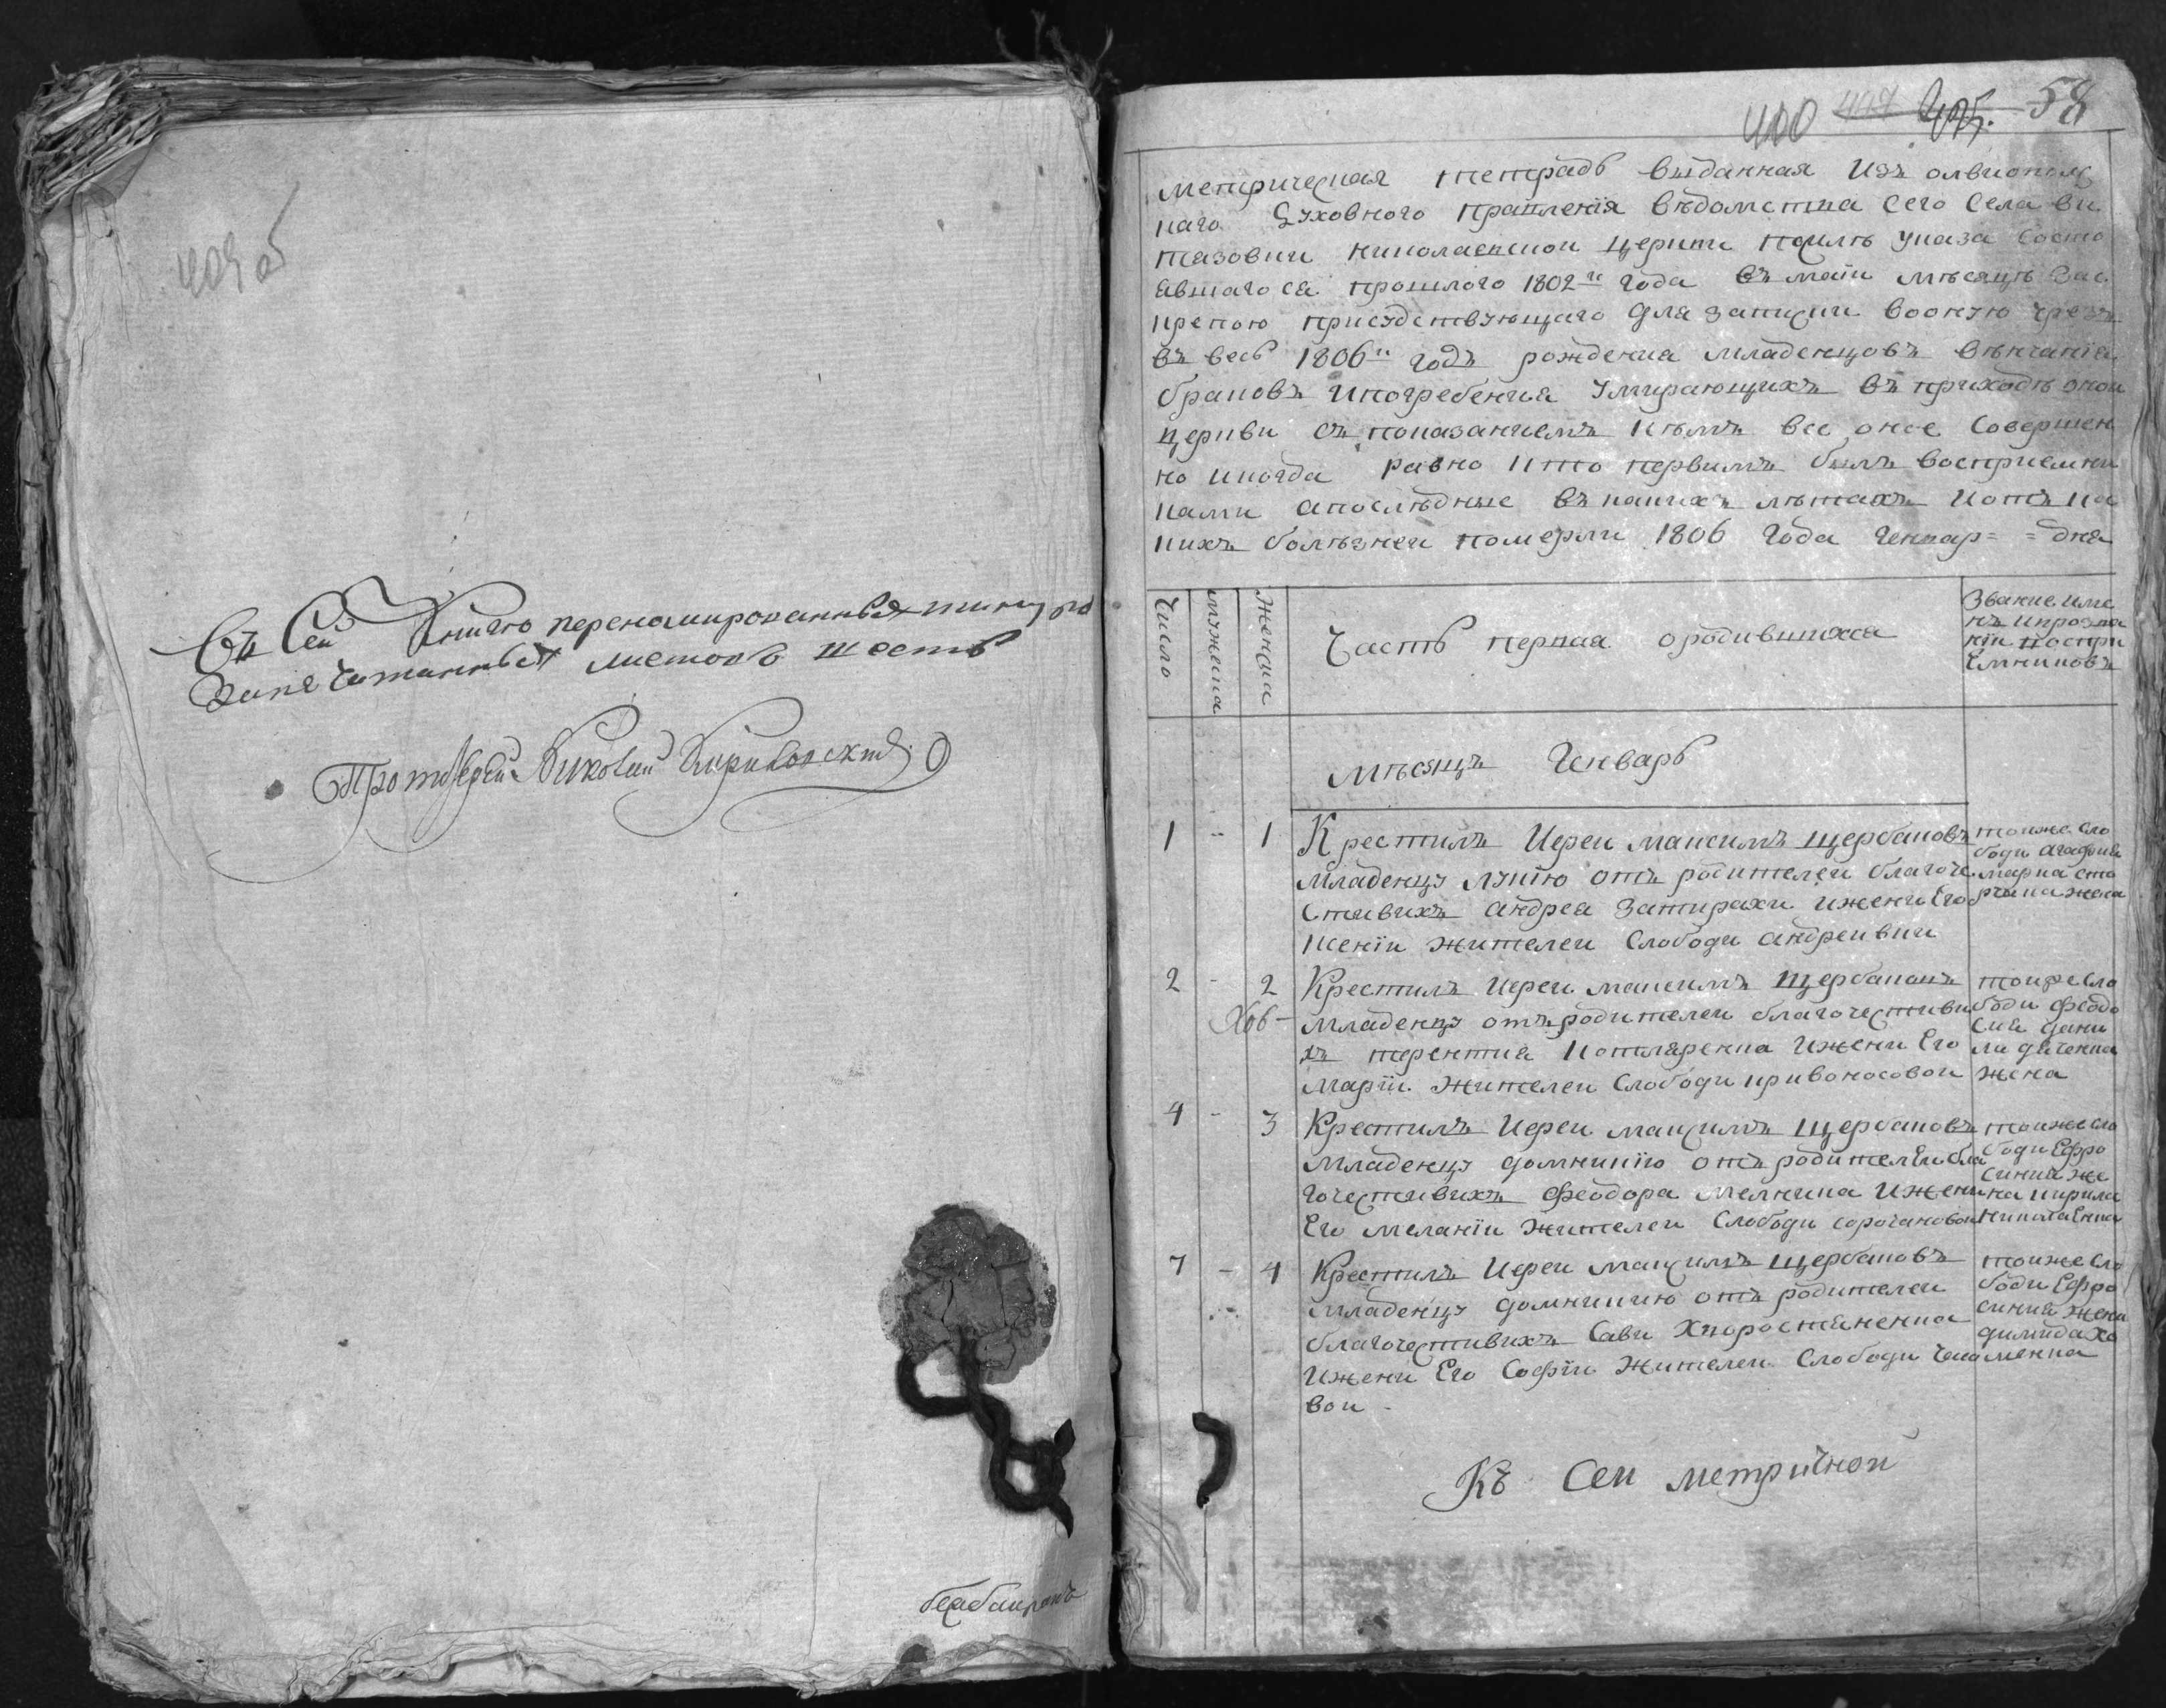 409 об
Въ Сей Книгѣ перенамированныхъ шнур
запечатанныхъ листовъ шесть
Протоіерей Николай
400 407 405. 58
Метрическая тетрадь выданная изъ олвиополс
каго Духовного правленія вѣдомства сего села ви
тязовки николаевской церкви послѣ указа состо
явшагося прошлого 1802го года въ маіи мѣсяцѣ зас
крепою присудствующаго для записки вооную чрезъ
въ весь 1806й годъ рожденія младенцовъ вѣнчанія
браковъ ипогребенія умирающихъ въ приходѣ оной
церкви съ показаніемъ кѣмъ все оное совершен
но икогда равно кто первимъ билъ восприемни
ками апослѣдные въ какихъ лѣтахъ иотъ ка
кихъ болѣзней померли 1806 года Генвар= = дня
Число
мужеска
женска
Часть первая ородившихся
Звание име
нъ ипрозва
ніи воспри
емниковъ
Мѣсяцъ Генварь
1 - 1 Крестилъ Иереи максимъ щербаковъ
младенцу лукію отъ родителей благоче
стивихъ андреа затирахи ижени Его
ксеніи жителеи слободи андреивки
тоиже сло
боди агафия
марка сто
жена
2 - 2 Крестилъ Иереи максимъ щербаковъ
младенцу отъ родителеи благочестиви
хъ терентия котляренка ижени Его
маріи жителеи слободи кривоносовои
тоиже сло
боди феодо
сия дани
ла дяченка
жена
4 - 3 Крестилъ Иереи максимъ щербаковъ
младенцу домникию отъ родителеи бла
гочестивихъ феодора мелника ижени
Его меланіи жителеи слободи сорочановои
тоиже сло
боди Ефро
синия же
на кирила
николаенка
7 - 4 Крестилъ Иереи максимъ щербаковъ
младенцу домникию отъ родителеи
благочестивихъ сави хворостяненка
ижени Его Софіи жителеи слободи
вои -
тоиже сло
боди Ефро
синия жена
димида хо
менка
Къ сей метричной